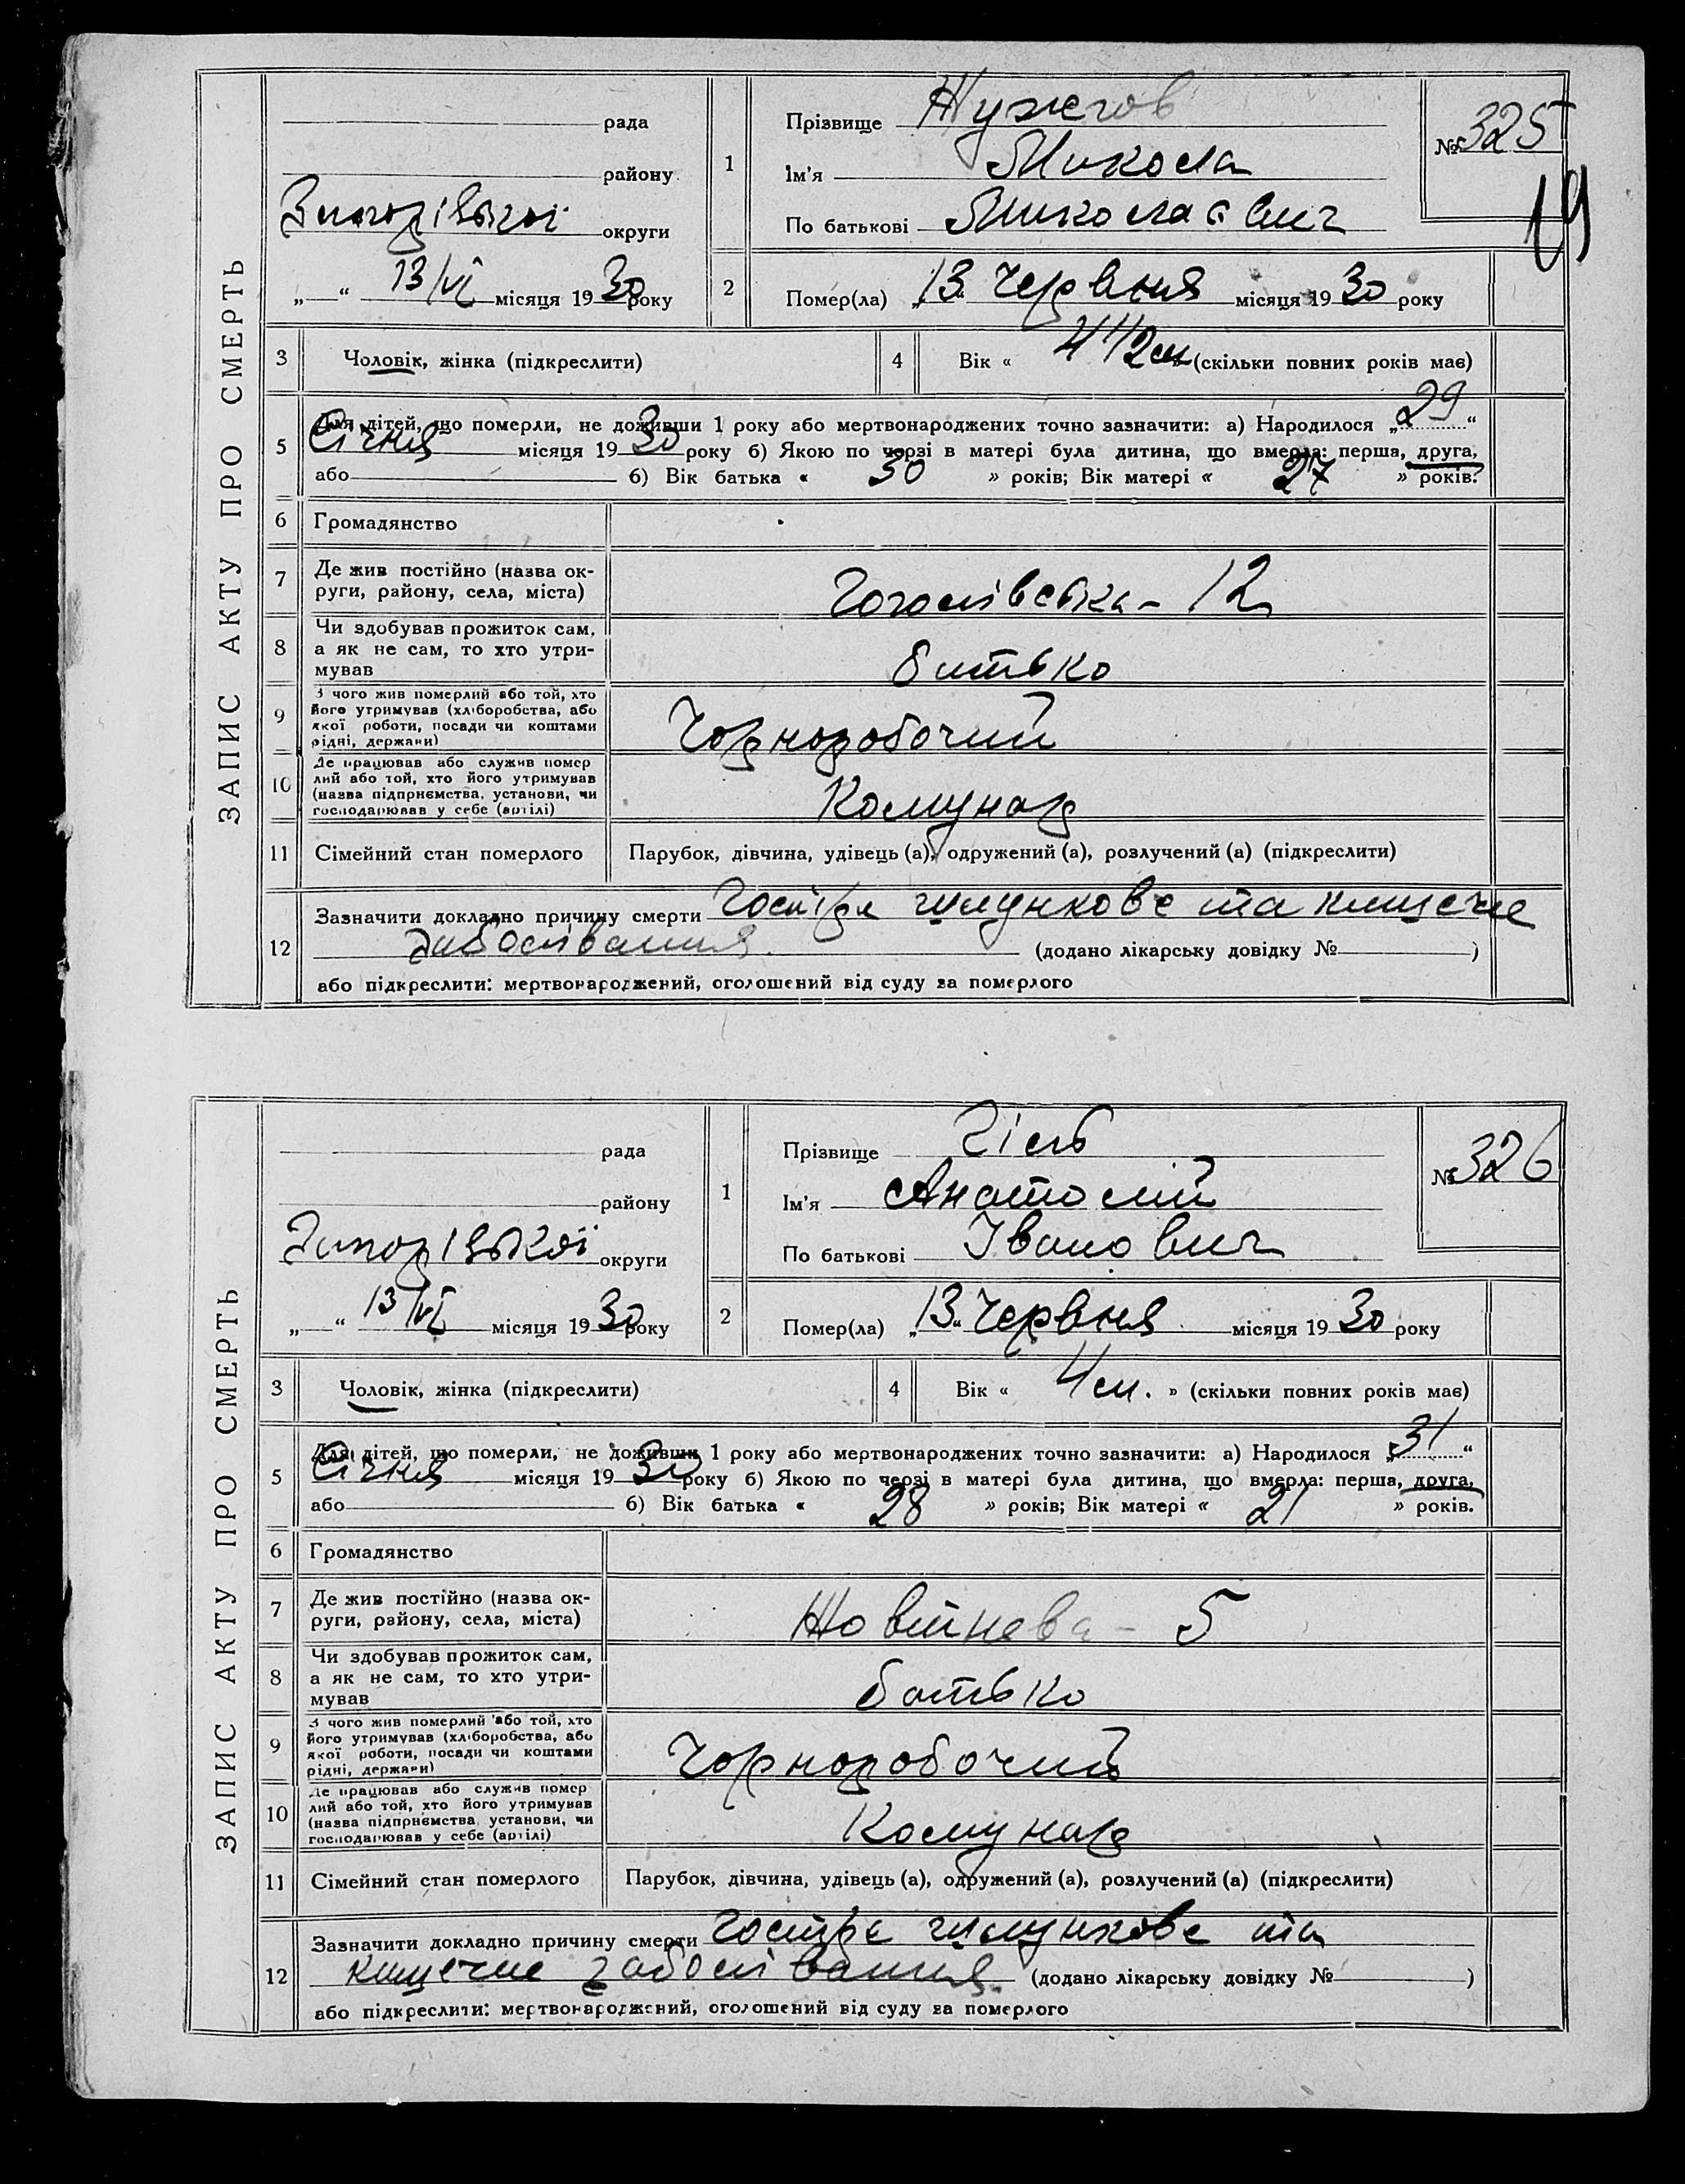 ЗАПИС АКТУ ПРО СМЕРТЬ
рада
району
округи
„—“ 13/VI місяця 1930 року
1
Прізвище
Ім'я Микола
По батькові Миколаєвич
№ 325
19
2
Помер(ла) „13“ Червня місяця 1930 року
3
Чоловік, жінка (підкреслити)
4
Вік « 4 1/2 м » (скільки повних років має)
5
Для дітей, що померли, не доживши 1 року або мертвонароджених точно зазначити: а) Народилося „29“
Січня місяця 1930 року б) Якою по черзі в матері була дитина, що вмерла: перша, друга,
або б) Вік батька « 30 » років; Вік матері « 27 » років.
6
Громадянство
7
Де жив постійно (назва ок-
руги, району, села, міста)
Гоголівська - 12
8
Чи здобував прожиток сам,
а як не сам, то хто утри-
мував
батько
9
З чого жив померлий або той, хто
його утримував (хліборобства, або
якої роботи, посади чи коштами
рідні, держави)
Чорноробочий
10
Де працював або служив помер
лий або той, хто його утримував
(назва підприємства, установи, чи
господарював у себе (артілі)
Комунар
11
Сімейний стан померлого
Парубок, дівчина, удівець (а), одружений (а), розлучений (а) (підкреслити)
12
Зазначити докладно причину смерти Гостре шлункове та кишечне
заболівання (додано лікарську довідку № )
або підкреслити: мертвонароджений, оголошений від суду за померлого
ЗАПИС АКТУ ПРО СМЕРТЬ
рада
району
округи
„—“ 13/VI місяця 1930 року
1
Прізвище
Ім'я Анатолій
По батькові Іванович
№ 326
2
Помер(ла) „13“ Червня місяця 1930 року
3
Чоловік, жінка (підкреслити)
4
Вік « 4 м. » (скільки повних років має)
5
Для дітей, що померли, не доживши 1 року або мертвонароджених точно зазначити: а) Народилося „31“
Січня місяця 1930 року б) Якою по черзі в матері була дитина, що вмерла: перша, друга,
або б) Вік батька « 28 » років; Вік матері « 21 » років.
6
Громадянство
7
Де жив постійно (назва ок-
руги, району, села, міста)
Жовтнева - 5
8
Чи здобував прожиток сам,
а як не сам, то хто утри-
мував
батько
9
З чого жив померлий або той, хто
його утримував (хліборобства, або
якої роботи, посади чи коштами
рідні, держави)
Чорноробочий
10
Де працював або служив помер
лий або той, хто його утримував
(назва підприємства, установи, чи
господарював у себе (артілі)
Комунар
11
Сімейний стан померлого
Парубок, дівчина, удівець (а), одружений (а), розлучений (а) (підкреслити)
12
Зазначити докладно причину смерти Гостре шлункове та
кишечне заболівання. (додано лікарську довідку № )
або підкреслити: мертвонароджений, оголошений від суду за померлого